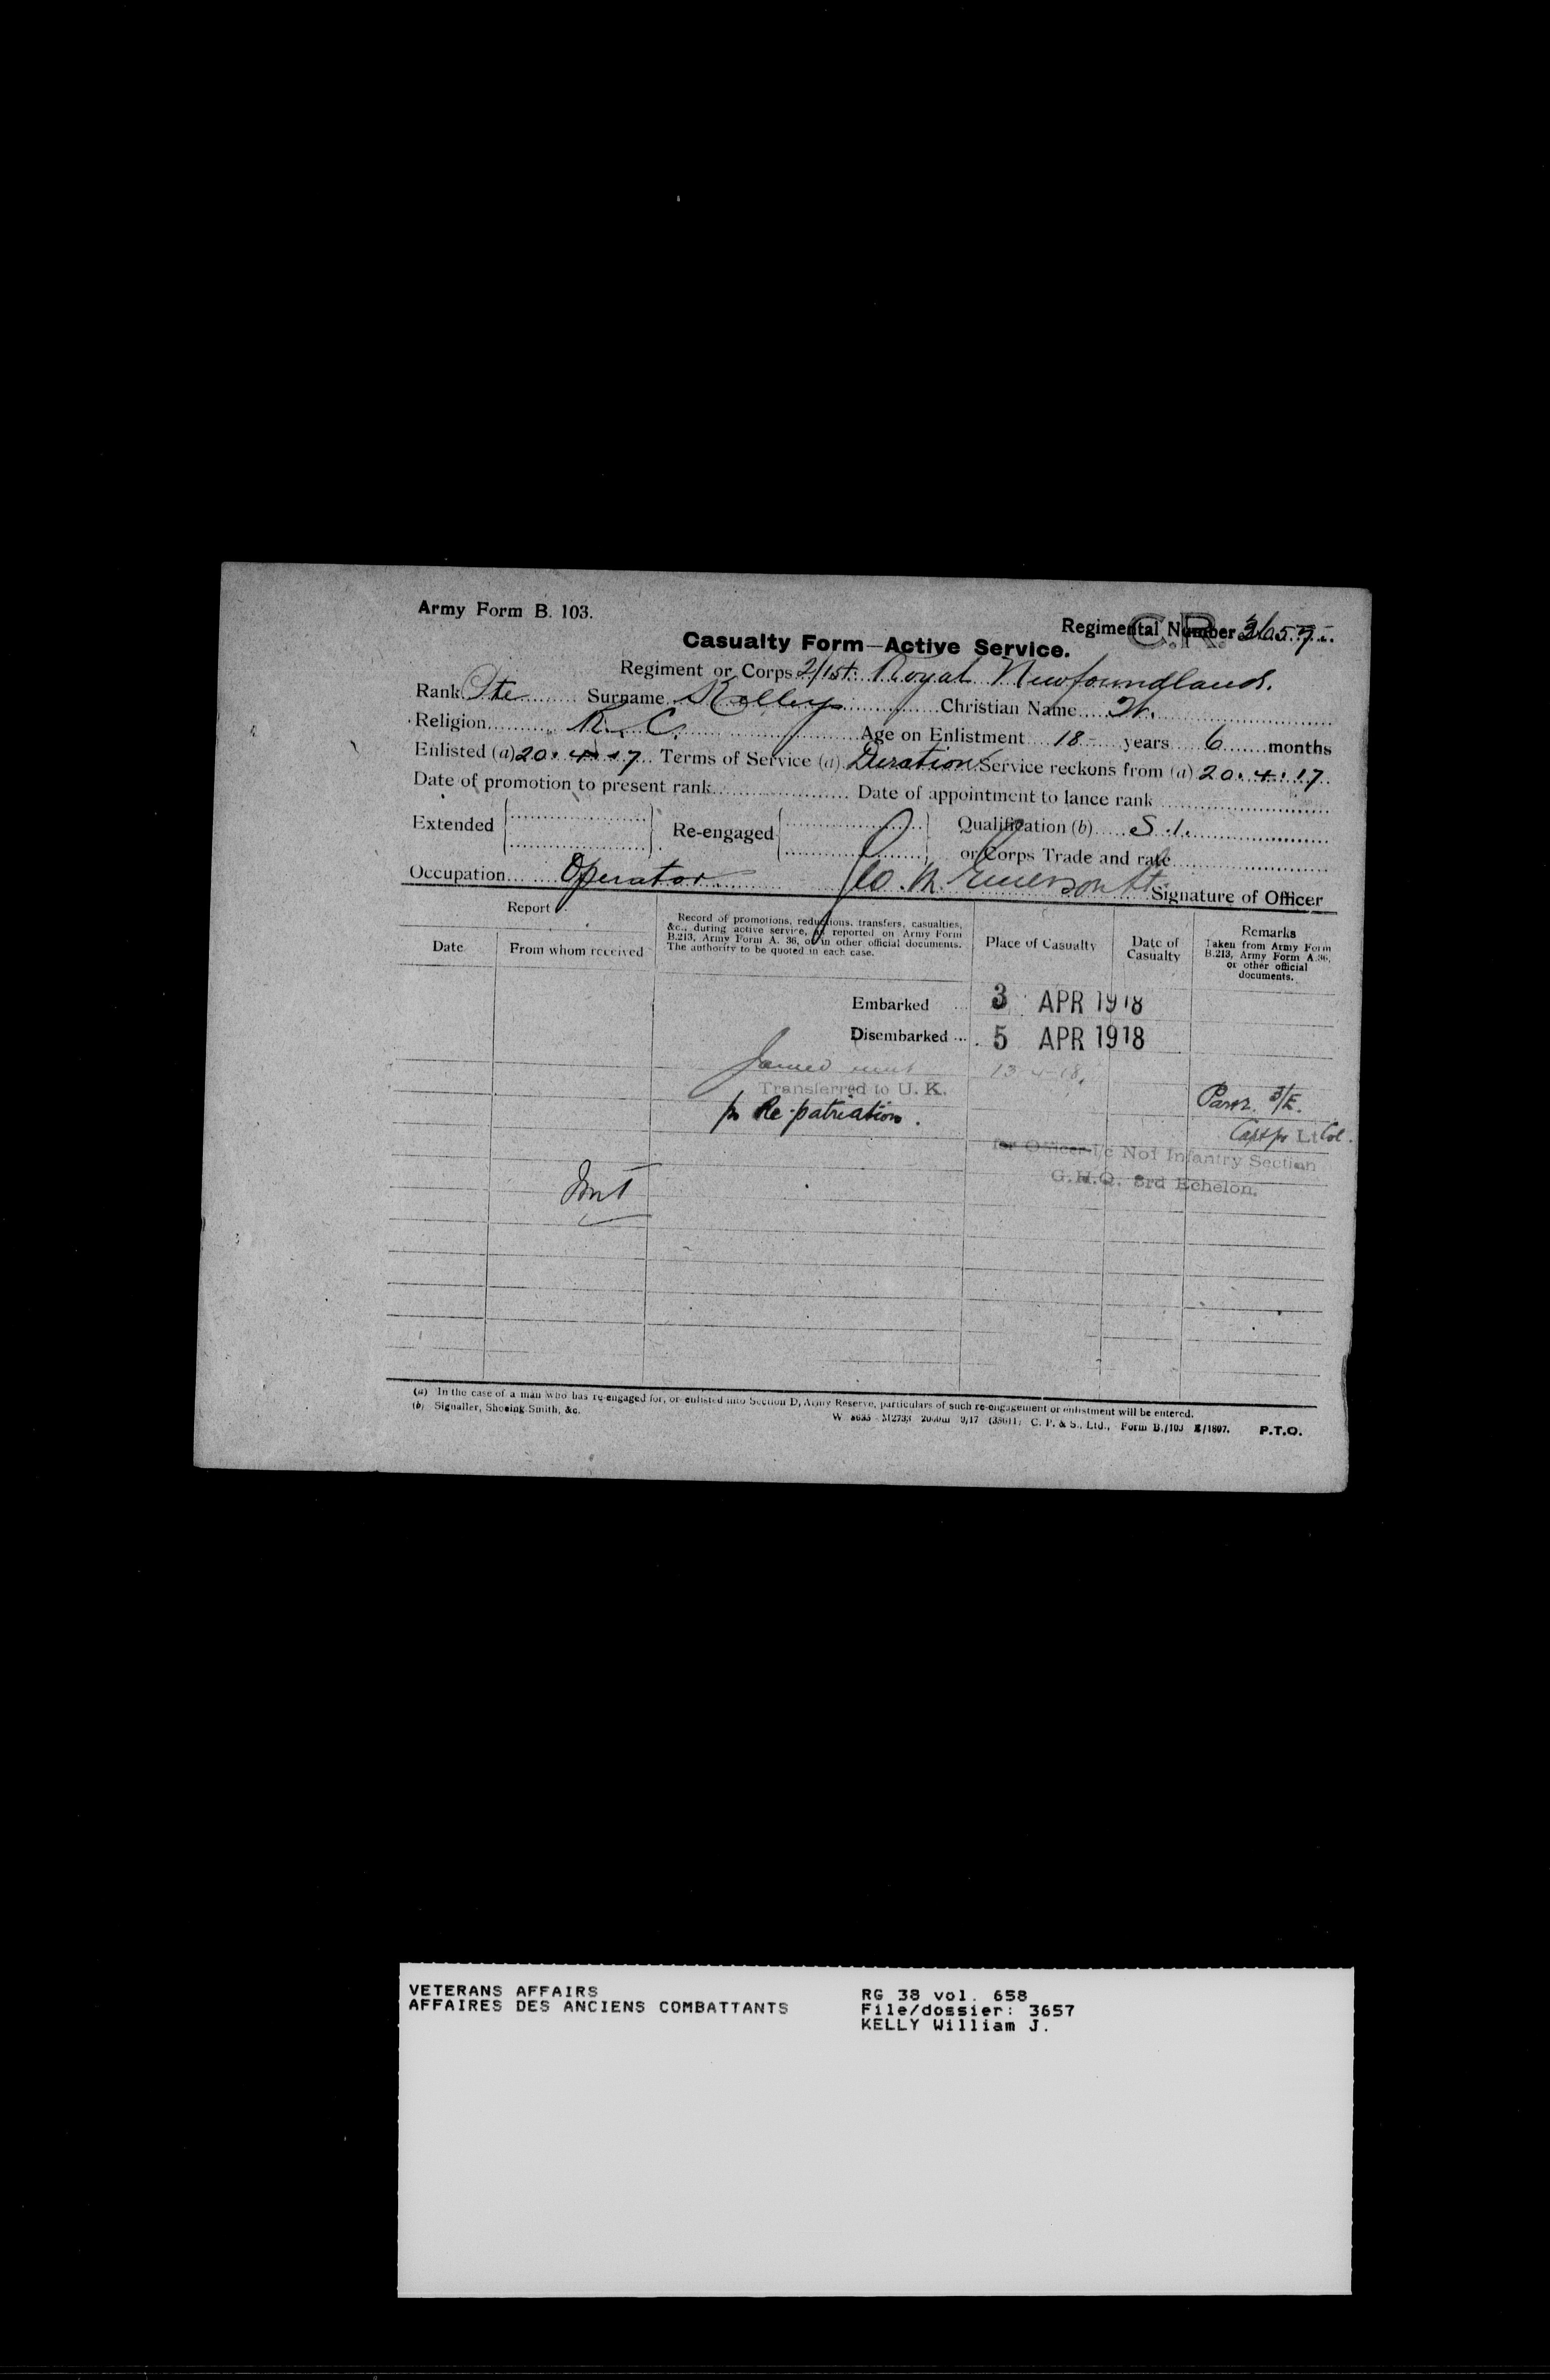 Army Form B. 103.
Regimental Number 3657
C.R.
Casualty Form—Active Service.
Regiment or Corps 2/1st. Royal Newfoundland.
Rank Pte Surname Kelly Christian Name W.
Religion R. C. Age on Enlistment 18 years 6 months
Enlisted (a) 20.4.17 Terms of Service (a) Duration Service reckons from (a) 20.4.17.
Date of promotion to present rank Date of appointment to lance rank
Extended Re-engaged Qualification (b) S.1.
or Corps Trade and rate
Occupation Operator. Lt Signature of Officer
Report
Date From whom received
Record of promotions, reductions, transfers, casualties,
&c., during active service, as reported on Army Form
B.213, Army Form A. 36, or in other official documents.
The authority to be quoted in each case.
Place of Casualty
Date of
Casualty
Remarks
Taken from Army Form
B.213, Army Form A.36,
or other official
documents.
Embarked ... 3 APR 1918
Disembarked ... 5 APR 1918
Joined unit 13-4-18.
Transferred to U. K.
Re-patriation.
Capt for Lt Col.
for Officer i/c No1 Infantry Section
G.H.Q. 3rd Echelon.
(a) In the case of a man who has re-engaged for, or enlisted into Section D, Army Reserve, particulars of such re-engagement or enlistment will be entered.
(b) Signaller, Shoeing Smith, &c.
C. P. & S., Ltd., Form B./103 E/1807. P.T.O.
VETERANS AFFAIRS
AFFAIRES DES ANCIENS COMBATTANTS
RG 38 vol. 658
File/dossier: 3657
KELLY William J.